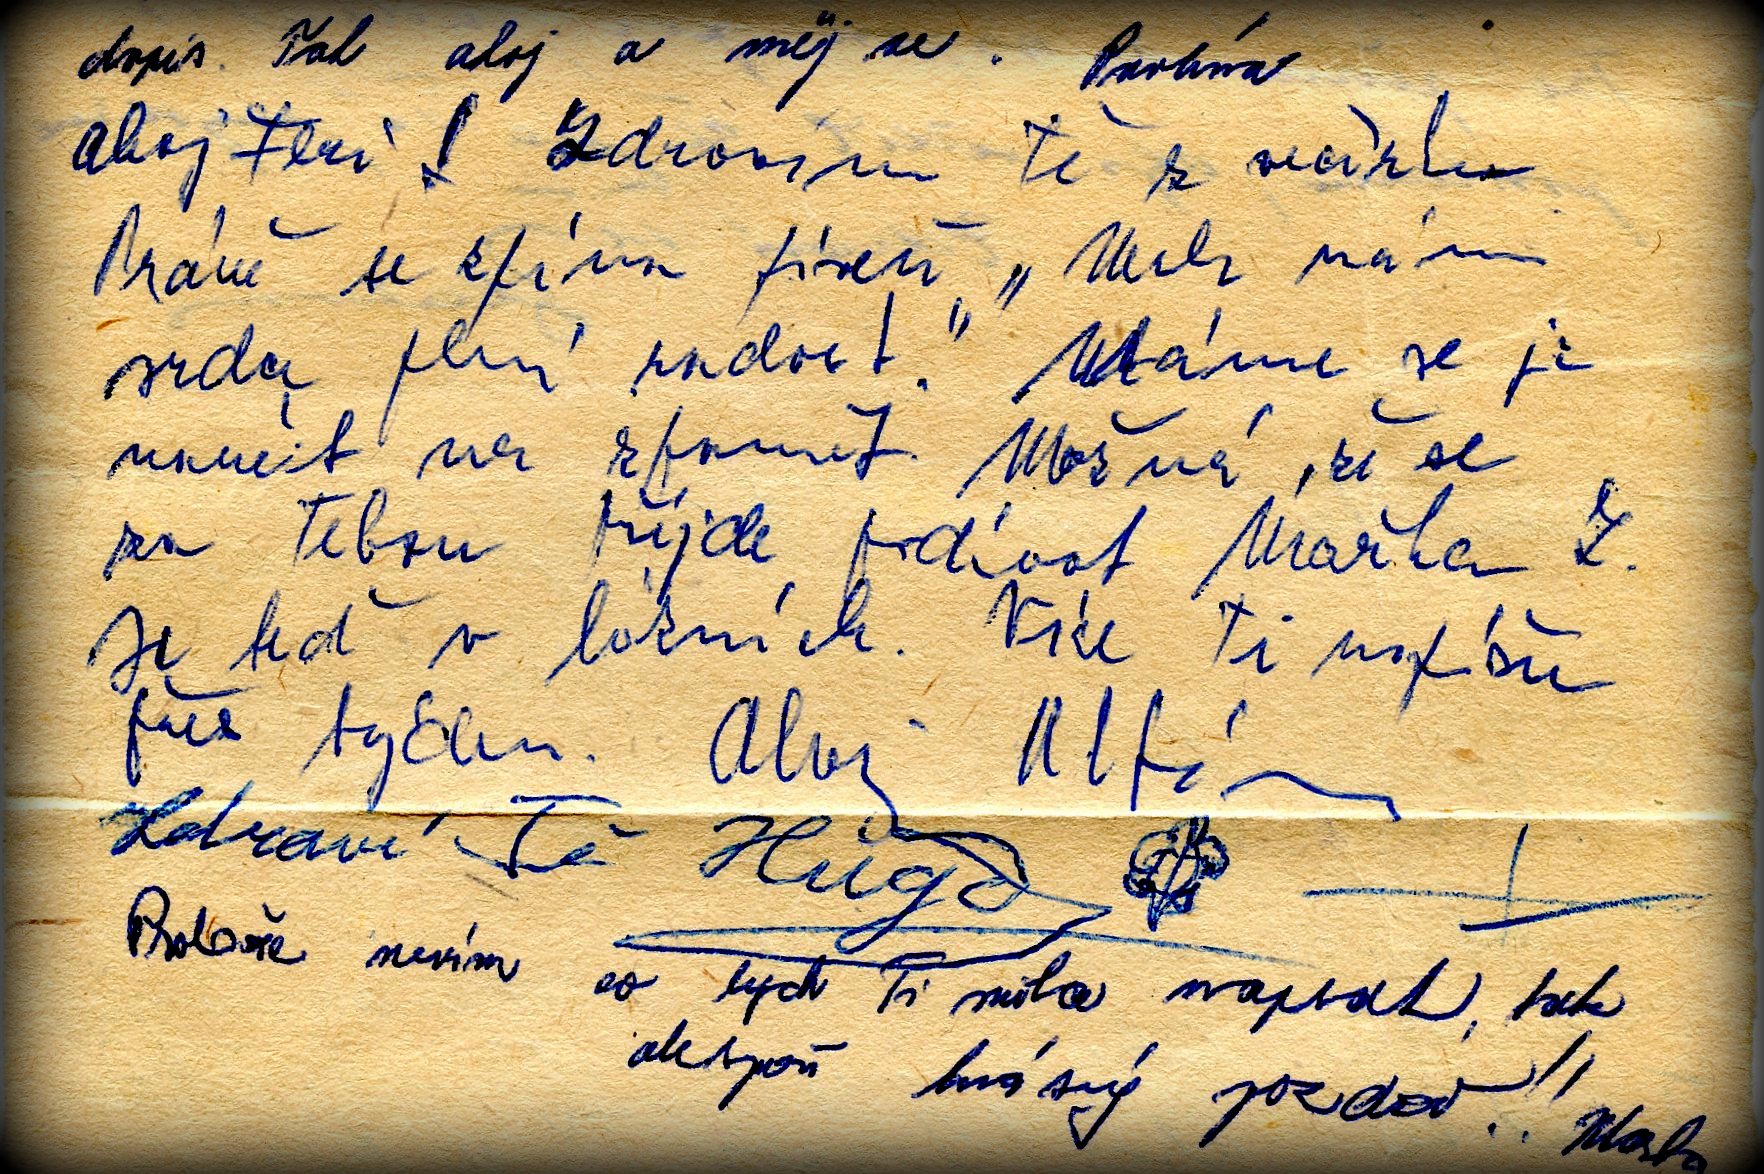 dopis. Tak ahoj a měj se. Pavlína
Ahoj Teri! Zdravím tě z
Právě se zpívá píseň „Welr nám
srdce plní radost." Máme se ji
naučit na zpaměť. Možná, že se
za Tebou přijde podívat Mařka Z.
Je teď v lázních. Více Ti napíšu
přes týden. Ahoj
Zdraví Tě Hugo
Protože nevím co bych Ti měla napsat, tak
alespoň krásný pozdrav!!